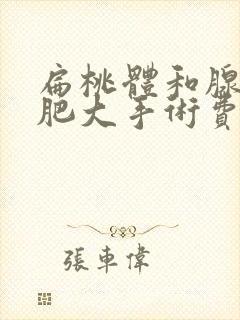 扁桃體和腺
肥大手術費
張車偉